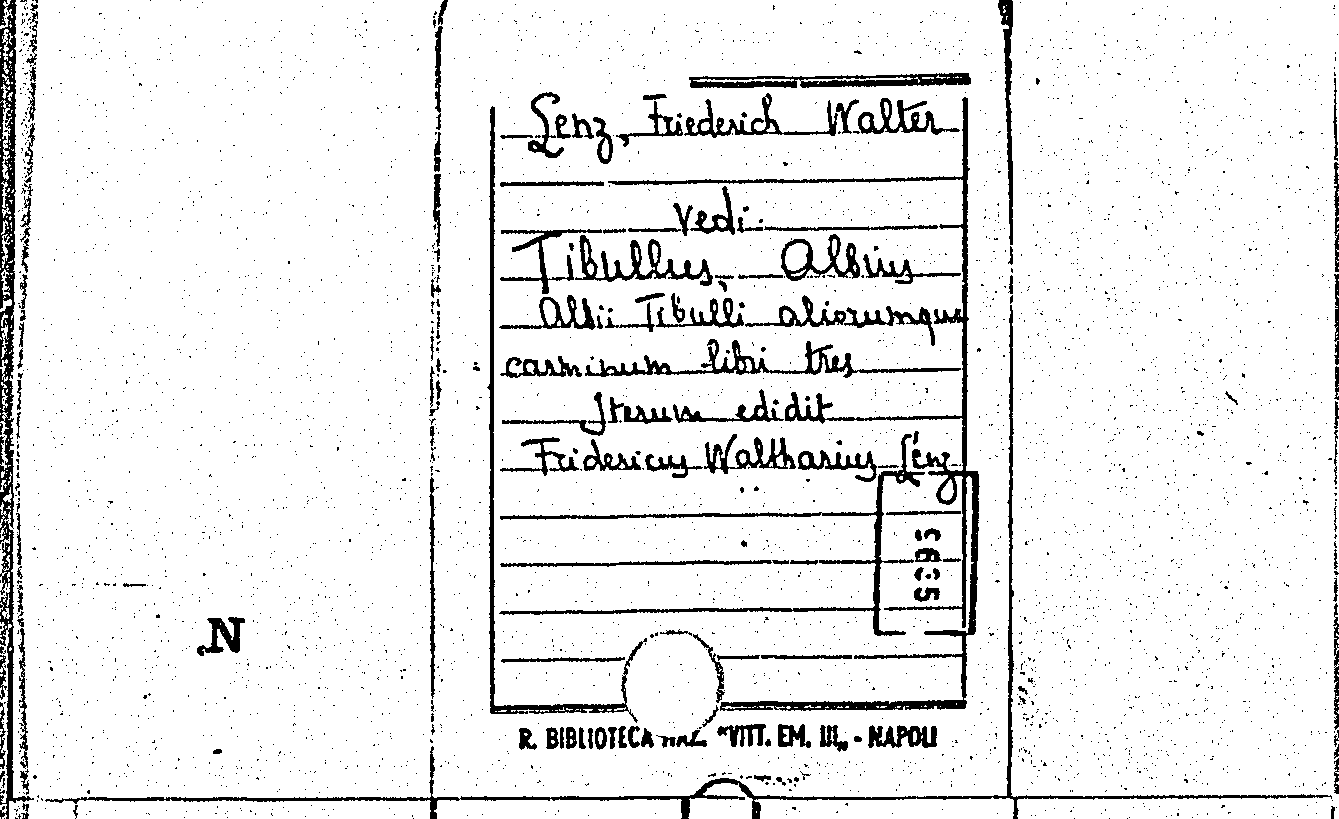 Lenz, Friederich Walter
vedi:
Tibullus, Albius
Albii Tibulli aliorumque
carminum libri tres
Iterum edidit
Fridericus Waltharius Lenz
N.
R. BIBLIOTECA NAZ. "VITT. EM. III„ - NAPOLI